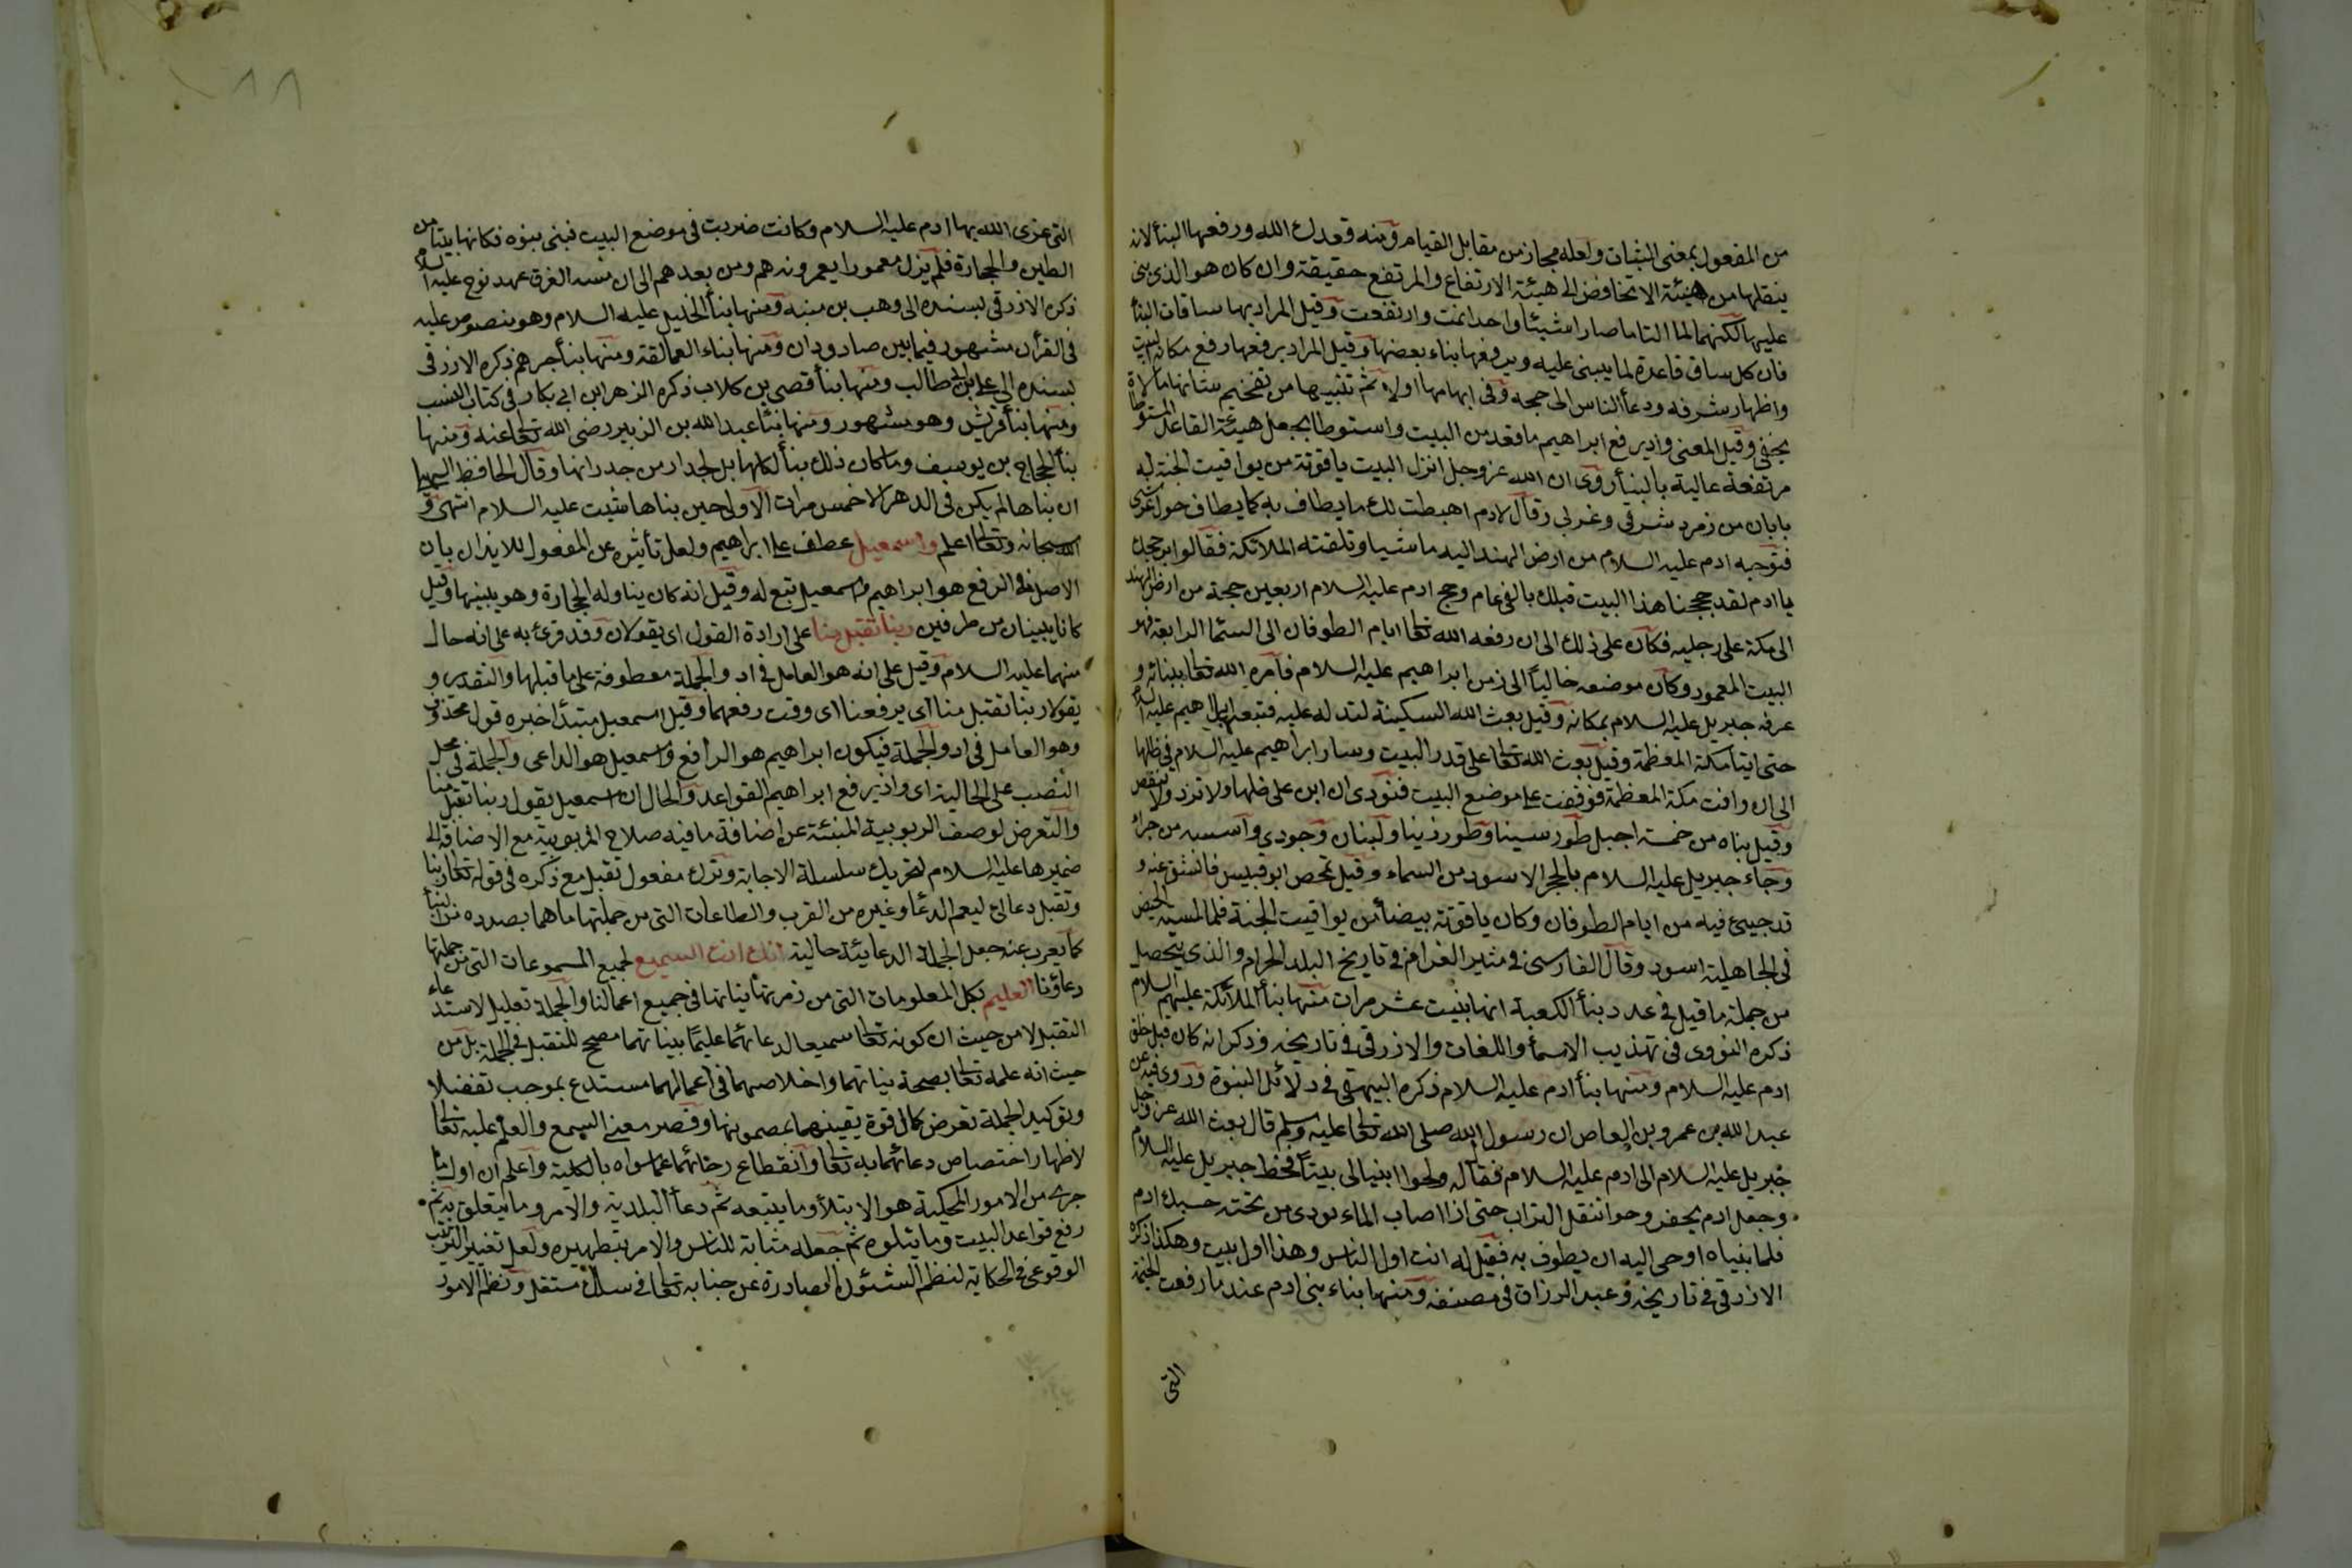 من المفعول بمعنى الثبات ولعله مجاز من مقابل القيام ومنه قعدك الله ورفعها البنأ لانه
ينقلها من هيئة الانخافض الى هيئة الارتفاع والمرتفع حقيقة وان كان هو الذى بنى
عليها لكنهما لما التاما صارا شيئا واحدا نمت وارتفعت وقيل المراد بها ساقات البنأ
فان كل ساق قاعدة لما يبنى عليه ويرفعها بناء بعضها وقيل المراد برفعها رفع مكانة البيت
واظهار شرفه ودعأ الناس الى حجه وفى ابهامها اولا ثم تبيينها من تفخيم شانها ما لا
يخفى وقيل المعنى واذ يرفع ابراهيم ما قعد من البيت واستوطا يجعل هيئة القاعد المستوطأة
مرتفعة عالية بالبنأ روى ان الله عز وجل انزل البيت ياقوتة من يواقيت الجنة له
بابان من زمرد شرقى وغربى وقال لادم اهبطت لك ما يطاف به كما يطاف حول عرشى
فتوجه ادم عليه السلام من ارض الهند اليه ماشيا وتلقته الملائكة فقالوا بر حجك
يا ادم لقد حججنا هذا البيت قبلك بالفى عام وحج ادم عليه السلام اربعين حجة من ارض الهند
الى مكة على رجليه فكان على ذلك الى ان رفعه الله تعالى ايام الطوفان الى السمآ الرابعة فهو
البيت المعمور وكان موضعه خالياً الى زمن ابراهيم عليه السلام فامره الله تعالى ببنائه و
عرفه جبريل عليه السلام بمكانه وقيل بعث الله السكينة لتدله عليه فتبعها ابراهيم عليه السلام
حتى اتيا مكة المعظمة وقيل بعث الله تعالى على قدر البيت وسار ابراهيم عليه السلام فى ظلها
الى ان وافت مكة المعظمة فوقفت على موضع البيت فنودى ان ابن على ظلها ولا تزد ولا تنقص
وقيل بناه من خمسة اجبل طور سينا وطور زيتا ولبنان وجودي واسسه من حراء
وجاء جبريل عليه السلام بالحجر الاسود من السماء وقيل تمخض ابو قبيس فانشق عنه و
قد خبئ فيه من ايام الطوفان وكان ياقوتة بيضأ من يواقيت الجنة فلما لمسته الحيض
فى الجاهلية اسود وقال الفارسى فى مثير الغرام فى تاريخ البلد الحرام والذى يتحصل
من جملة ما قيل فى عدد بنأ الكعبة انها بنيت عشر مرات منها بنأ الملائكة عليهم السلام
ذكره النووى فى تهذيب الاسمأ واللغات والازرقى فى تاريخه وذكر انه كان قبل خلق
ادم عليه السلام ومنها بنأ ادم عليه السلام ذكره البيهقى فى دلائل النبوة وروى فيه عن
عبد الله بن عمرو بن العاص ان رسول الله صلى الله تعالى عليه وسلم قال بعث الله عز وجل
جبريل عليه السلام الى ادم عليه السلام فقال له ولحوا ابنيا لى بيتاً فخط جبريل عليه السلام
وجعل ادم يحفر وحوا تنقل التراب حتى اذا اصاب الماء نودى من تحته حسبك ادم
فلما بنياه اوحى اليه ان يطوف به فقيل له انت اول الناس وهذا اول بيت وهكذا ذكره
الازرقى فى تاريخه وعبد الرزاق فى مصنفه ومنها بناء بنى ادم عند ما رفعت الخيمة
التى
٨٨
التى عزى الله بها ادم عليه السلام وكانت ضربت فى موضع البيت فبنى بنوه مكانها بيتا من
الطين والحجارة فلم يزل معمورا يعمرونه هم ومن بعدهم الى ان مسه الغرق عهد نوح عليه السلام
ذكره الازرقى بسنده الى وهب بن منبه ومنها بنأ الخليل عليه السلام وهو منصوص عليه
فى القرأن مشهور فيما بين صادودان ومنها بناء العمالقة ومنها بنأ جرهم ذكره الازرقى
بسنده الى على بن ابى طالب ومنها بنأ قصى بن كلاب ذكره الزهر ابن ابى بكار فى كتاب النسب
ومنها بنأ قريش وهو مشهور ومنها بنأ عبد الله بن الزبير رضى الله تعالى عنه ومنها
بنأ الحجاج بن يوسف وما كان ذلك بنأ لكلها بل لجدار من جدرانها وقال الحافظ السهيلى
ان بناها لم يكن فى الدهر الا خمس مرات الاولى حين بناها شيت عليه السلام انتهى و
الله سبحانه وتعالى اعلم واسمعيل عطف على ابراهيم ولعل تأخيره عن المفعول للايذان بان
الاصل فى الرفع هو ابراهيم واسمعيل تبع له وقيل انه كان يناوله الحجارة وهو يبنيها وقيل
كانا يبنيان من طرفين ربنا تقبل منا على ارادة القول اى يقولان وقد قرئ به على انه حال
منهما عليه السلام وقيل على انه هو العامل فى اذ والجملة معطوفة على ما قبلها والتقدير و
يقولان ربنا تقبل منا اى يرفعنا اى وقت رفعهما وقيل اسمعيل مبتدأ خبره قول محذوف
وهو العامل فى اذ والجملة فيكون ابراهيم هو الرافع واسمعيل هو الداعى والجملة فى محل
النصب على الحالية اى واذ يرفع ابراهيم القواعد والحال ان اسمعيل يقول ربنا تقبل منا
والتعرض لوصف الربوبية المنبئة عن اضافة ما فيه صلاح المربوبية مع الاضافة الى
ضميرها عليه السلام لتحريك سلسلة الاجابة وترك مفعول تقبل مع ذكره فى قوله تعالى ربنا
وتقبل دعائى ليعم الدعا وغيره من القرب والطاعات التى من جملتها ما هما بصدده من البنأ
كما يعرب عنه جعل الجملة الدعائية حالية انك انت السميع لجميع المسموعات التى من جملتها
دعاؤنا العليم بكل المعلومات التى من زمرتها نياتها فى جميع اعمالنا والجملة تعليل لاستدعاء
التقبل لا من حيث ان كونه تعالى سميعا لدعائهما عليمًا بنياتهما مصحح للتقبل فى الجملة بل من
حيث انه علمه تعالى بصحة نياتهما واخلاصهما فى اعمالهما مستدع بموجب تفضلا
وتوكيد الجملة تعرض كمال قوة يقينهما بمضمونها وقصر معنى السمع والعلم عليه تعالى
لاظهار اختصاص دعائهما به تعالى وانقطاع رجائهما عما سواه بالكلية واعلم ان اول ما
جرى من الامور المحكية هو الابتلأ وما يتبعه ثم دعأ البلدية والامر وما يتعلق به ثم
رفع قواعد البيت وما يتلوه ثم جعله مثابة للناس والامر بتطهيره ولعل تغيير الترتيب
الوقوعى فى الحكاية لنظم الشئون الصادرة عن جنابه تعالى فى سلك مستقل ونظم الامور